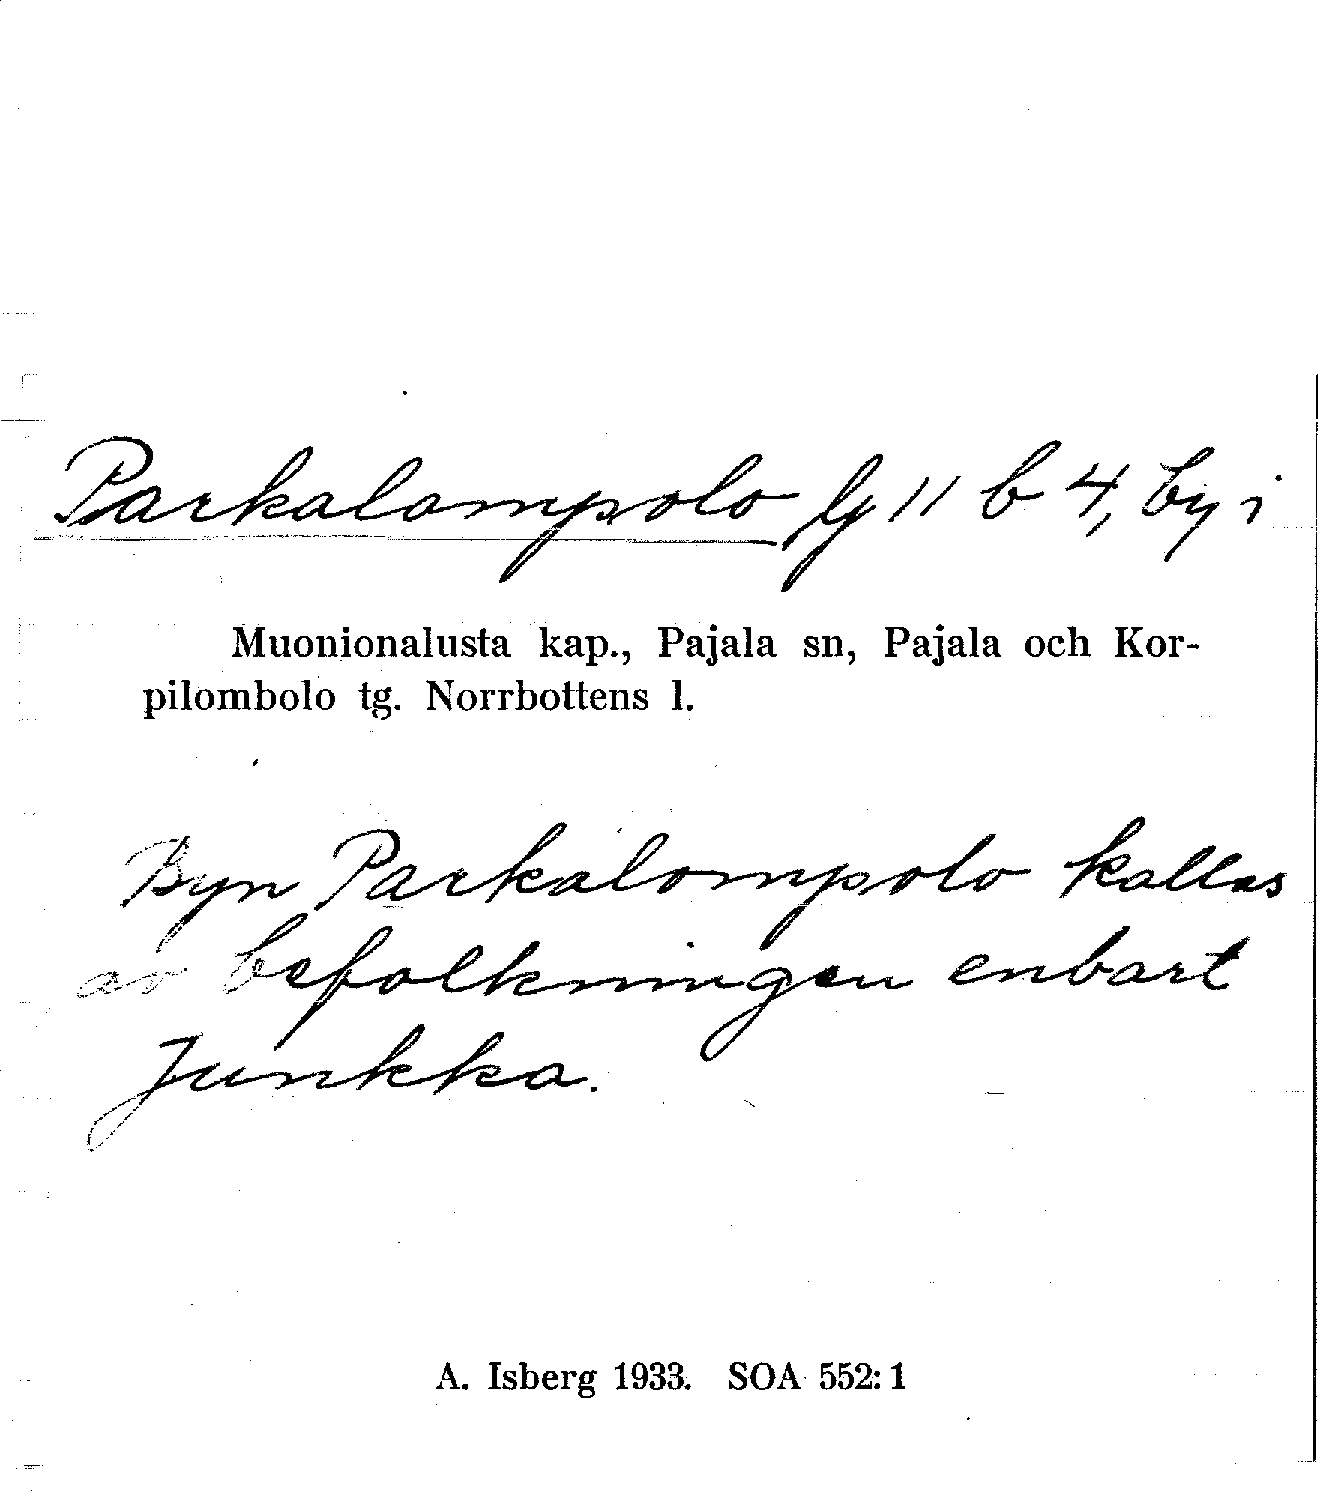 Parkalompolo fg 11 b 4, by i
Muonionalusta kap., Pajala sn, Pajala och Kor-
pilombolo tg. Norrbottens l.
Byn Parkalompolo kallas
av befolkningen enbart
Junkka.
A. Isberg 1933. SOA 552:1